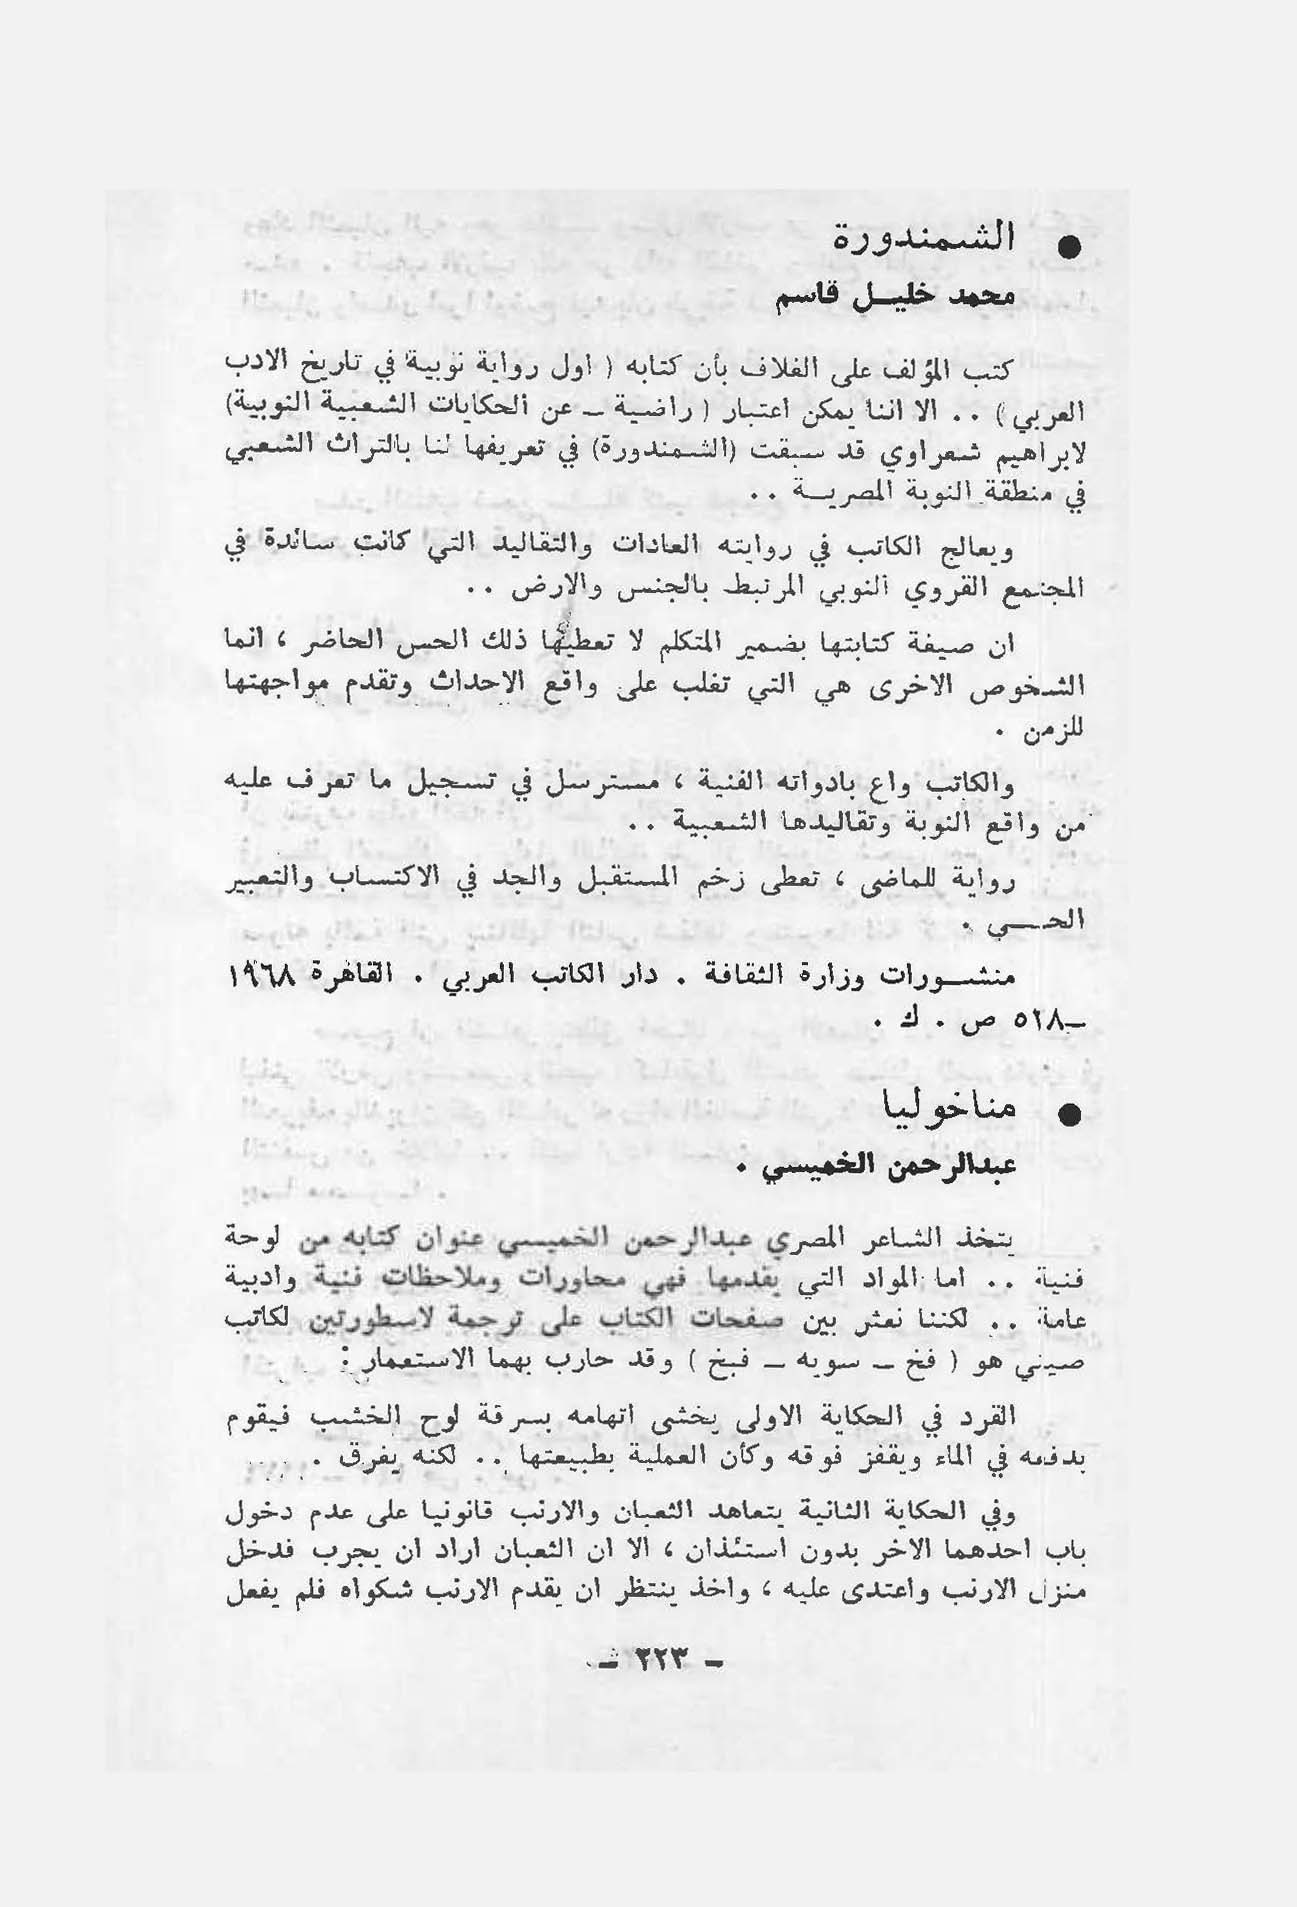 ● الشمندورة
محمد خليـل قاسم
كتب المؤلف على الغلاف بأن كتابه ( اول رواية نوبية في تاريخ الادب
العربي ) .. الا اننا يمكن اعتبار ( راضية ـ عن الحكايات الشعبية النوبية)
لابراهيم شعراوي قد سبقت (الشمندورة) في تعريفها لنا بالتراث الشعبي
في منطقة النوبة المصريـة ..
ويعالج الكاتب في روايته العادات والتقاليد التي كانت سائدة في
المجتمع القروي النوبي المرتبط بالجنس والارض ..
ان صيغة كتابتها بضمير المتكلم لا تعطيها ذلك الحس الحاضر ، انما
الشخوص الاخرى هي التي تغلب على واقع الاحداث وتقدم مواجهتها
للزمن .
والكاتب واع بادواته الفنية ، مسترسل في تسجيل ما تعرف عليه
من واقع النوبة وتقاليدها الشعبية ..
رواية للماضى ، تعطى زخم المستقبل والجد في الاكتساب والتعبير
الحـــي .
منشـورات وزارة الثقافة . دار الكاتب العربي . القاهرة ١٩٦٨
ـ٥٢٨ ص . ك .
● مناخوليا
عبدالرحمن الخميسي .
يتخذ الشاعر المصري عبدالرحمن الخميسي عنوان كتابه من لوحة
فنية .. اما المواد التي يقدمها فهي محاورات وملاحظات فنية وادبية
عامة .. لكننا نعثر بين صفحات الكتاب على ترجمة لاسطورتين لكاتب
صيني هو ( فخ ـ سويه ـ فبخ ) وقد حارب بهما الاستعمار :
القرد في الحكاية الاولى يخشى اتهامه بسرقة لوح الخشب فيقوم
بدفعه في الماء ويقفز فوقه وكأن العملية بطبيعتها .. لكنه يغرق . ....
وفي الحكاية الثانية يتعاهد الثعبان والارنب قانونيا على عدم دخول
باب احدهما الاخر بدون استئذان ، الا ان الثعبان اراد ان يجرب فدخل
منزل الارنب واعتدى عليه ، واخذ ينتظر ان يقدم الارنب شكواه فلم يفعل
ـ ٢٢٣ ـ